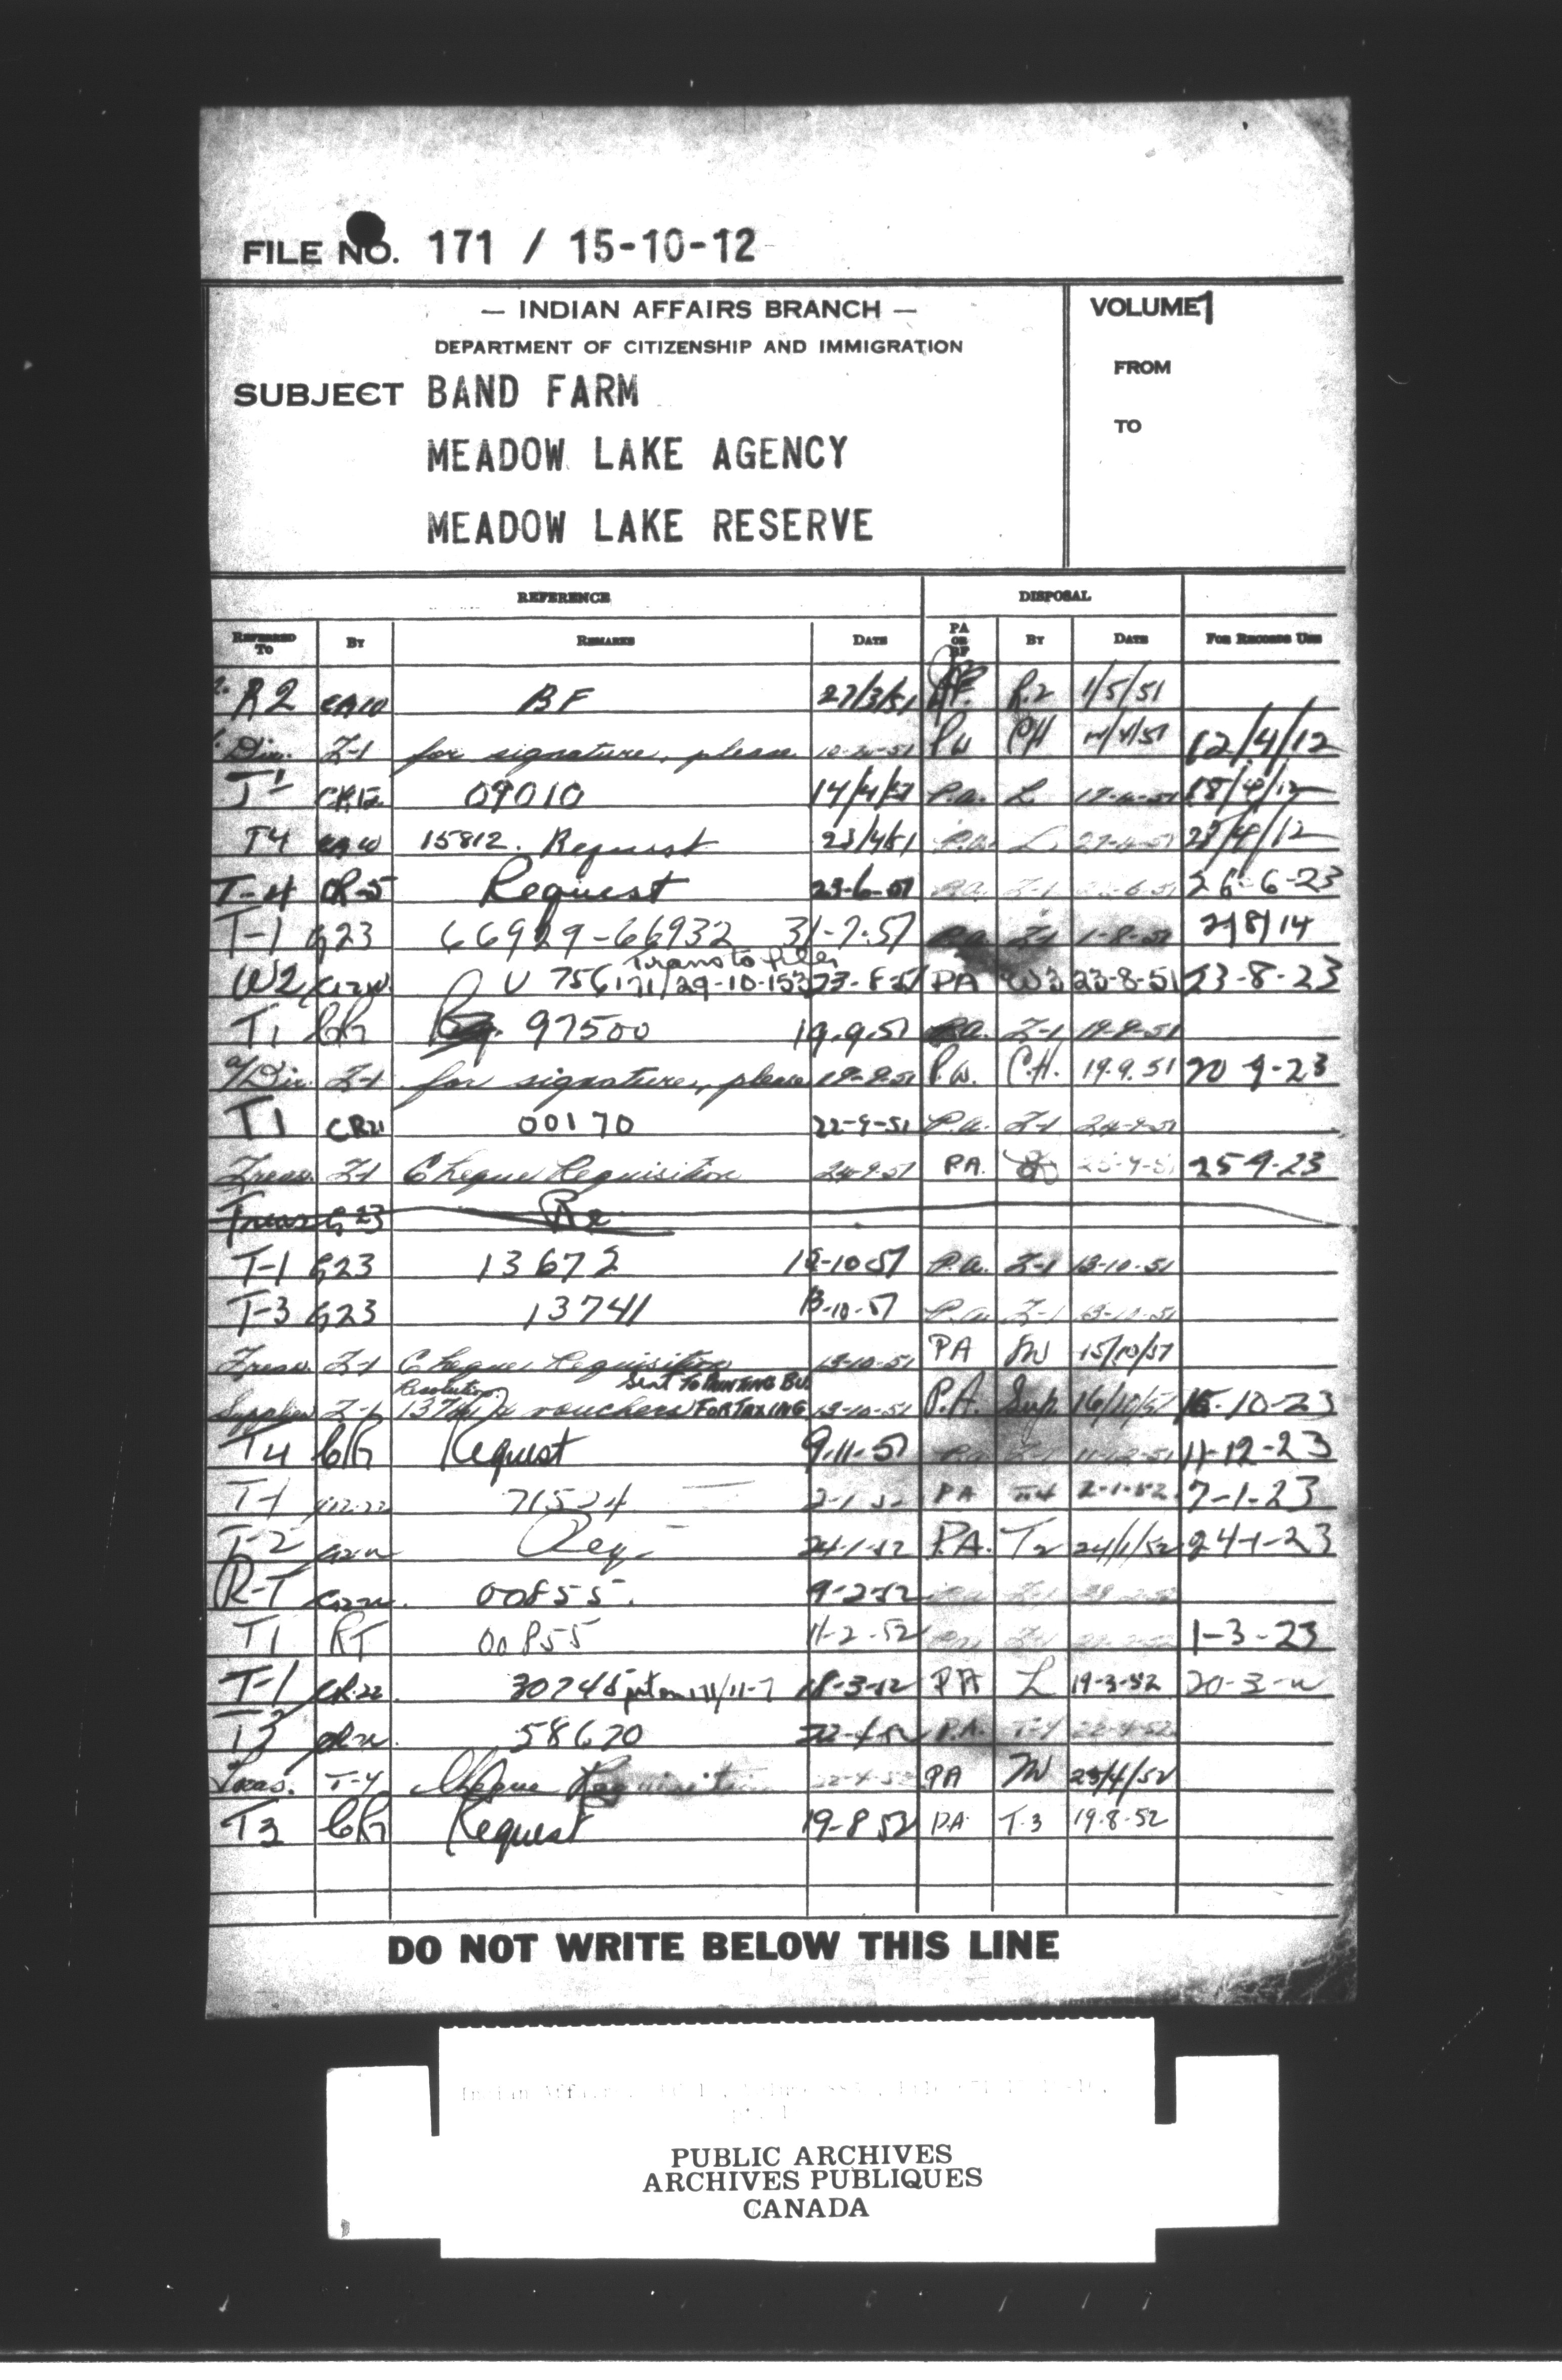 FILE NO. 171 / 15-10-12
— INDIAN AFFAIRS BRANCH —
VOLUME 1
DEPARTMENT OF CITIZENSHIP AND IMMIGRATION
FROM
SUBJECT BAND FARM
TO
MEADOW LAKE AGENCY
MEADOW LAKE RESERVE
REFERENCE DISPOSAL
REFERRED TO BY REMARKS DATE PA OR BF BY DATE FOR RECORDS USE
R2 BF 27/3/51 R.2 1/5/51
Dir. Z-1 for signature, please PW CH 12/4/12
T1 CR12 09010 14/4/51 P.A. L 18/4/12
T4 15812. Request 23/4/51 P.A. L 27/4/12
T-4 CR-5 Request P.A. Z-1 26-6-23
T-1 G23 66929-66932 31-7-51 P.A. Z-1 1-8-51 2/8/14
W2 U 756 Trans to file 171/29-10-153 23-8-51 PA W3 23-8-51 23-8-23
T1 CR 97500 19.9.51 P.A. Z-1 19-9-51
a/Dir. Z-1 for signature, please 19-9-51 P.W. C.H. 19.9.51 20-9-23
T1 CR21 00170 22-9-51 P.A. Z-1 24-9-51
Treas. Z-1 Cheque Requisition 24-9-51 PA. 25-9-51 25-9-23
Treas G23 Re
T-1 G23 13672 P.A. Z-1 13-10-51
T-3 G23 13741 13-10-51 P.A. Z-1 13-10-51
Treas. Z-1 Cheque Requisition 13-10-51 PA 15/10/51
Supplies Z-1 Resolution 13741 & vouchers SENT TO PRINTING BU. FOR TAXING 13-10-51 P.A. Sup 16/10/51 15-10-23
T4 CR Request 9-11-51 P.A. Z-1 11-12-51 11-12-23
T-1 71524 2-1-52 PA T4 2-1-52 7-1-23
T-2 Req. 24-1-52 P.A. T2 24/1/52 24-1-23
R-T 00855. 9-2-52
T1 RT 00855 11-2-52 1-3-23
T-1 CR.22 30748 put on 171/11-7 18-3-52 PA L 19-3-52 20-3-
T3 58670 22-4-52 P.A. T-4 22-4-52
Treas. T-4 Cheque Requisition 22-4-52 PA 23/4/52
T3 CR Request 19-8-52 PA T-3 19-8-52
DO NOT WRITE BELOW THIS LINE
PUBLIC ARCHIVES
ARCHIVES PUBLIQUES
CANADA